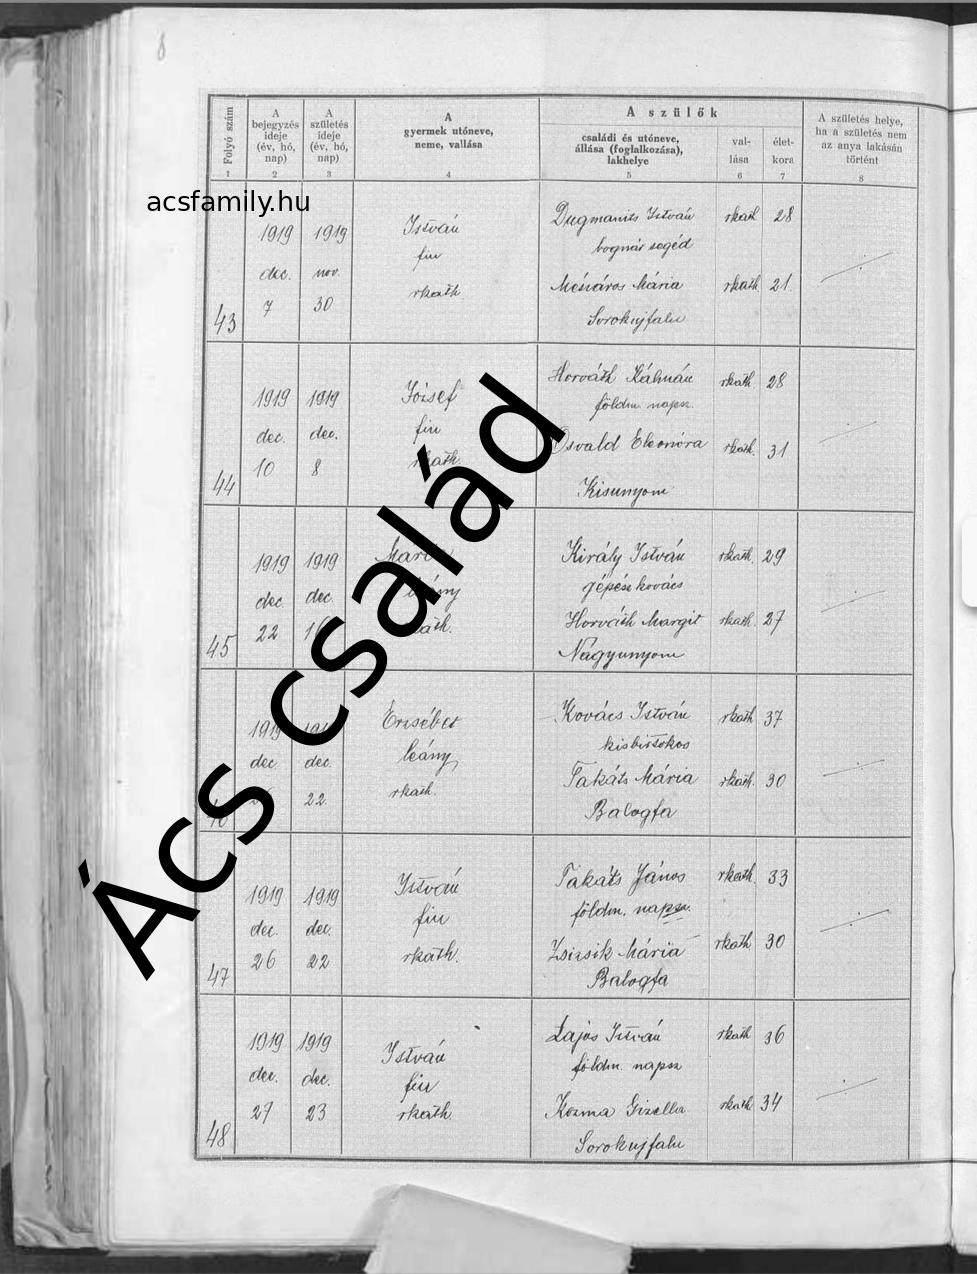 8
Folyó szám
A bejegyzés ideje (év, hó, nap)
A születés ideje (év, hó, nap)
A gyermek utóneve, neme, vallása
A szülők
családi és utóneve, állása (foglalkozása), lakhelye
val- lása
élet- kora
A születés helye, ha a születés nem az anya lakásán történt
1 2 3 4 5 6 7 8
acsfamily.hu
Ács család
1919 1919 István Dugmanits István rkath 28
dec. nov. fiu bognár segéd
7 30 rkath Mészáros Mária rkath 21.
43 Sorokujfalu
1919 1919 József Horváth Kálmán rkath 28
dec. dec. fiu földm. napsz.
10 8 rkath. Osvald Eleonóra rkath. 31
44 Kisunyom
1919 1919 Mária Király István rkath. 29
dec. dec. leány gépész kovács
22 Horváth Margit rkath. 27
45 Nagyunyom
1919 1919 Erzsébet Kovács István rkath 37
dec dec. leány kisbirtokos
22. rkath. Takáts Mária rkath. 30
Balogfa
1919 1919 István Takáts János rkath. 33
dec. dec. fiu földm. napsz.
26 22 rkath. Zsizsik Mária rkath 30
47 Balogfa
1919 1919 István Lajos István rkath 36
dec. dec. fiu földm. napsz
27 23 rkath. Kozma Gizella rkath 34
48 Sorokujfalu